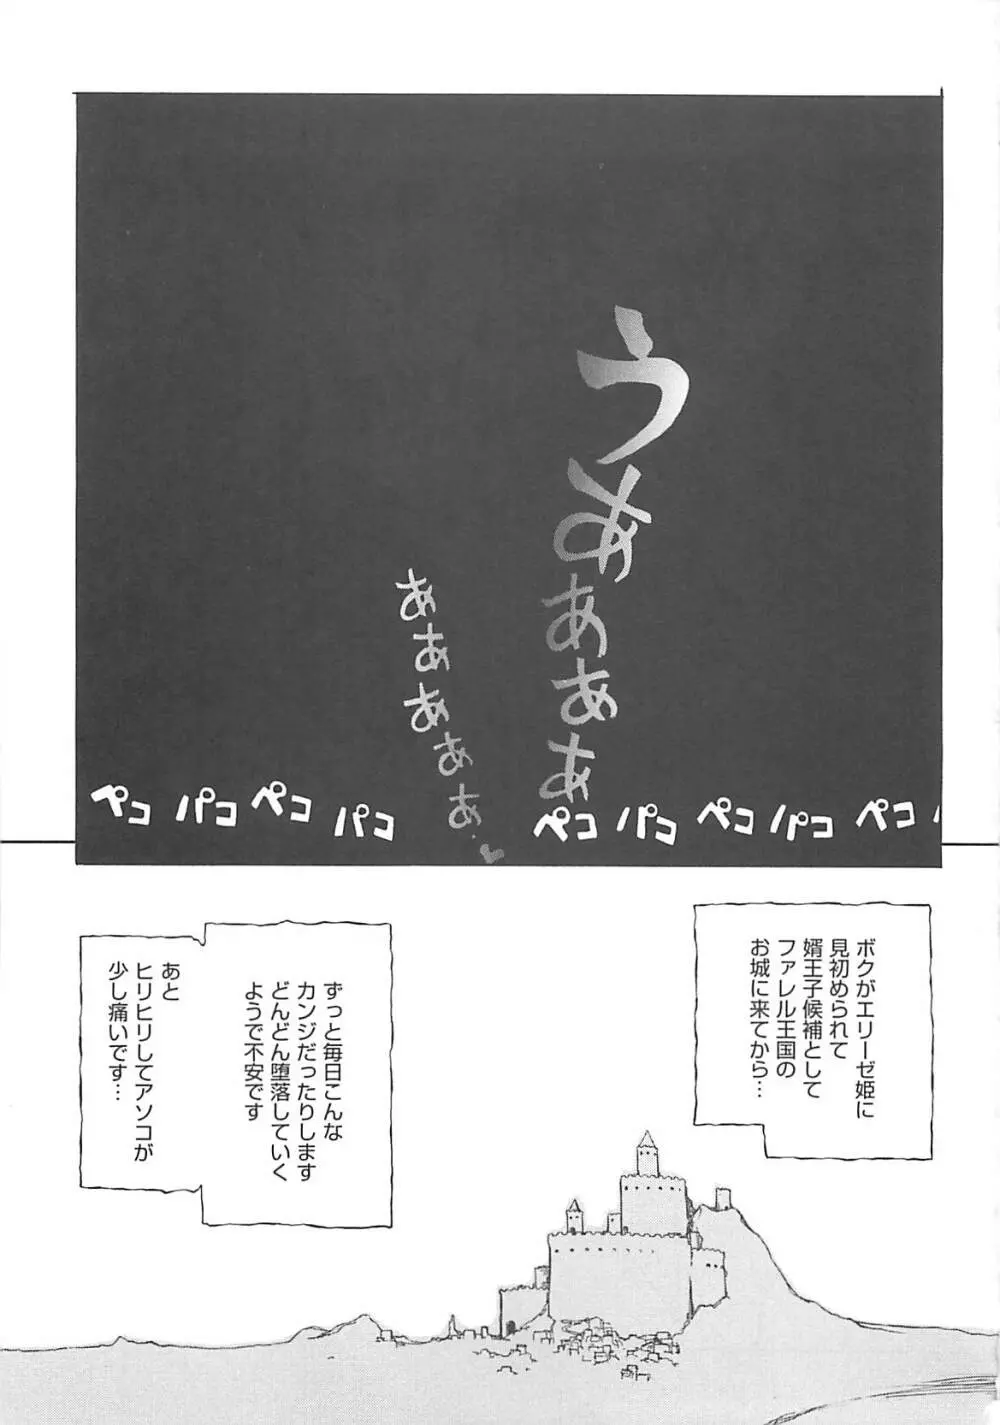 うあああぁ
ああああぁ
ペコ パコ ペコ パコ ペコ パコ ペコ パコ ペコ
ボクがエリーゼ姫に
見初められて
婿王子候補として
ファレル王国の
お城に来てから…
ずっと毎日こんな
カンジだったりします
どんどん堕落していく
ようで不安です
あと
ヒリヒリしてアソコが
少し痛いです…